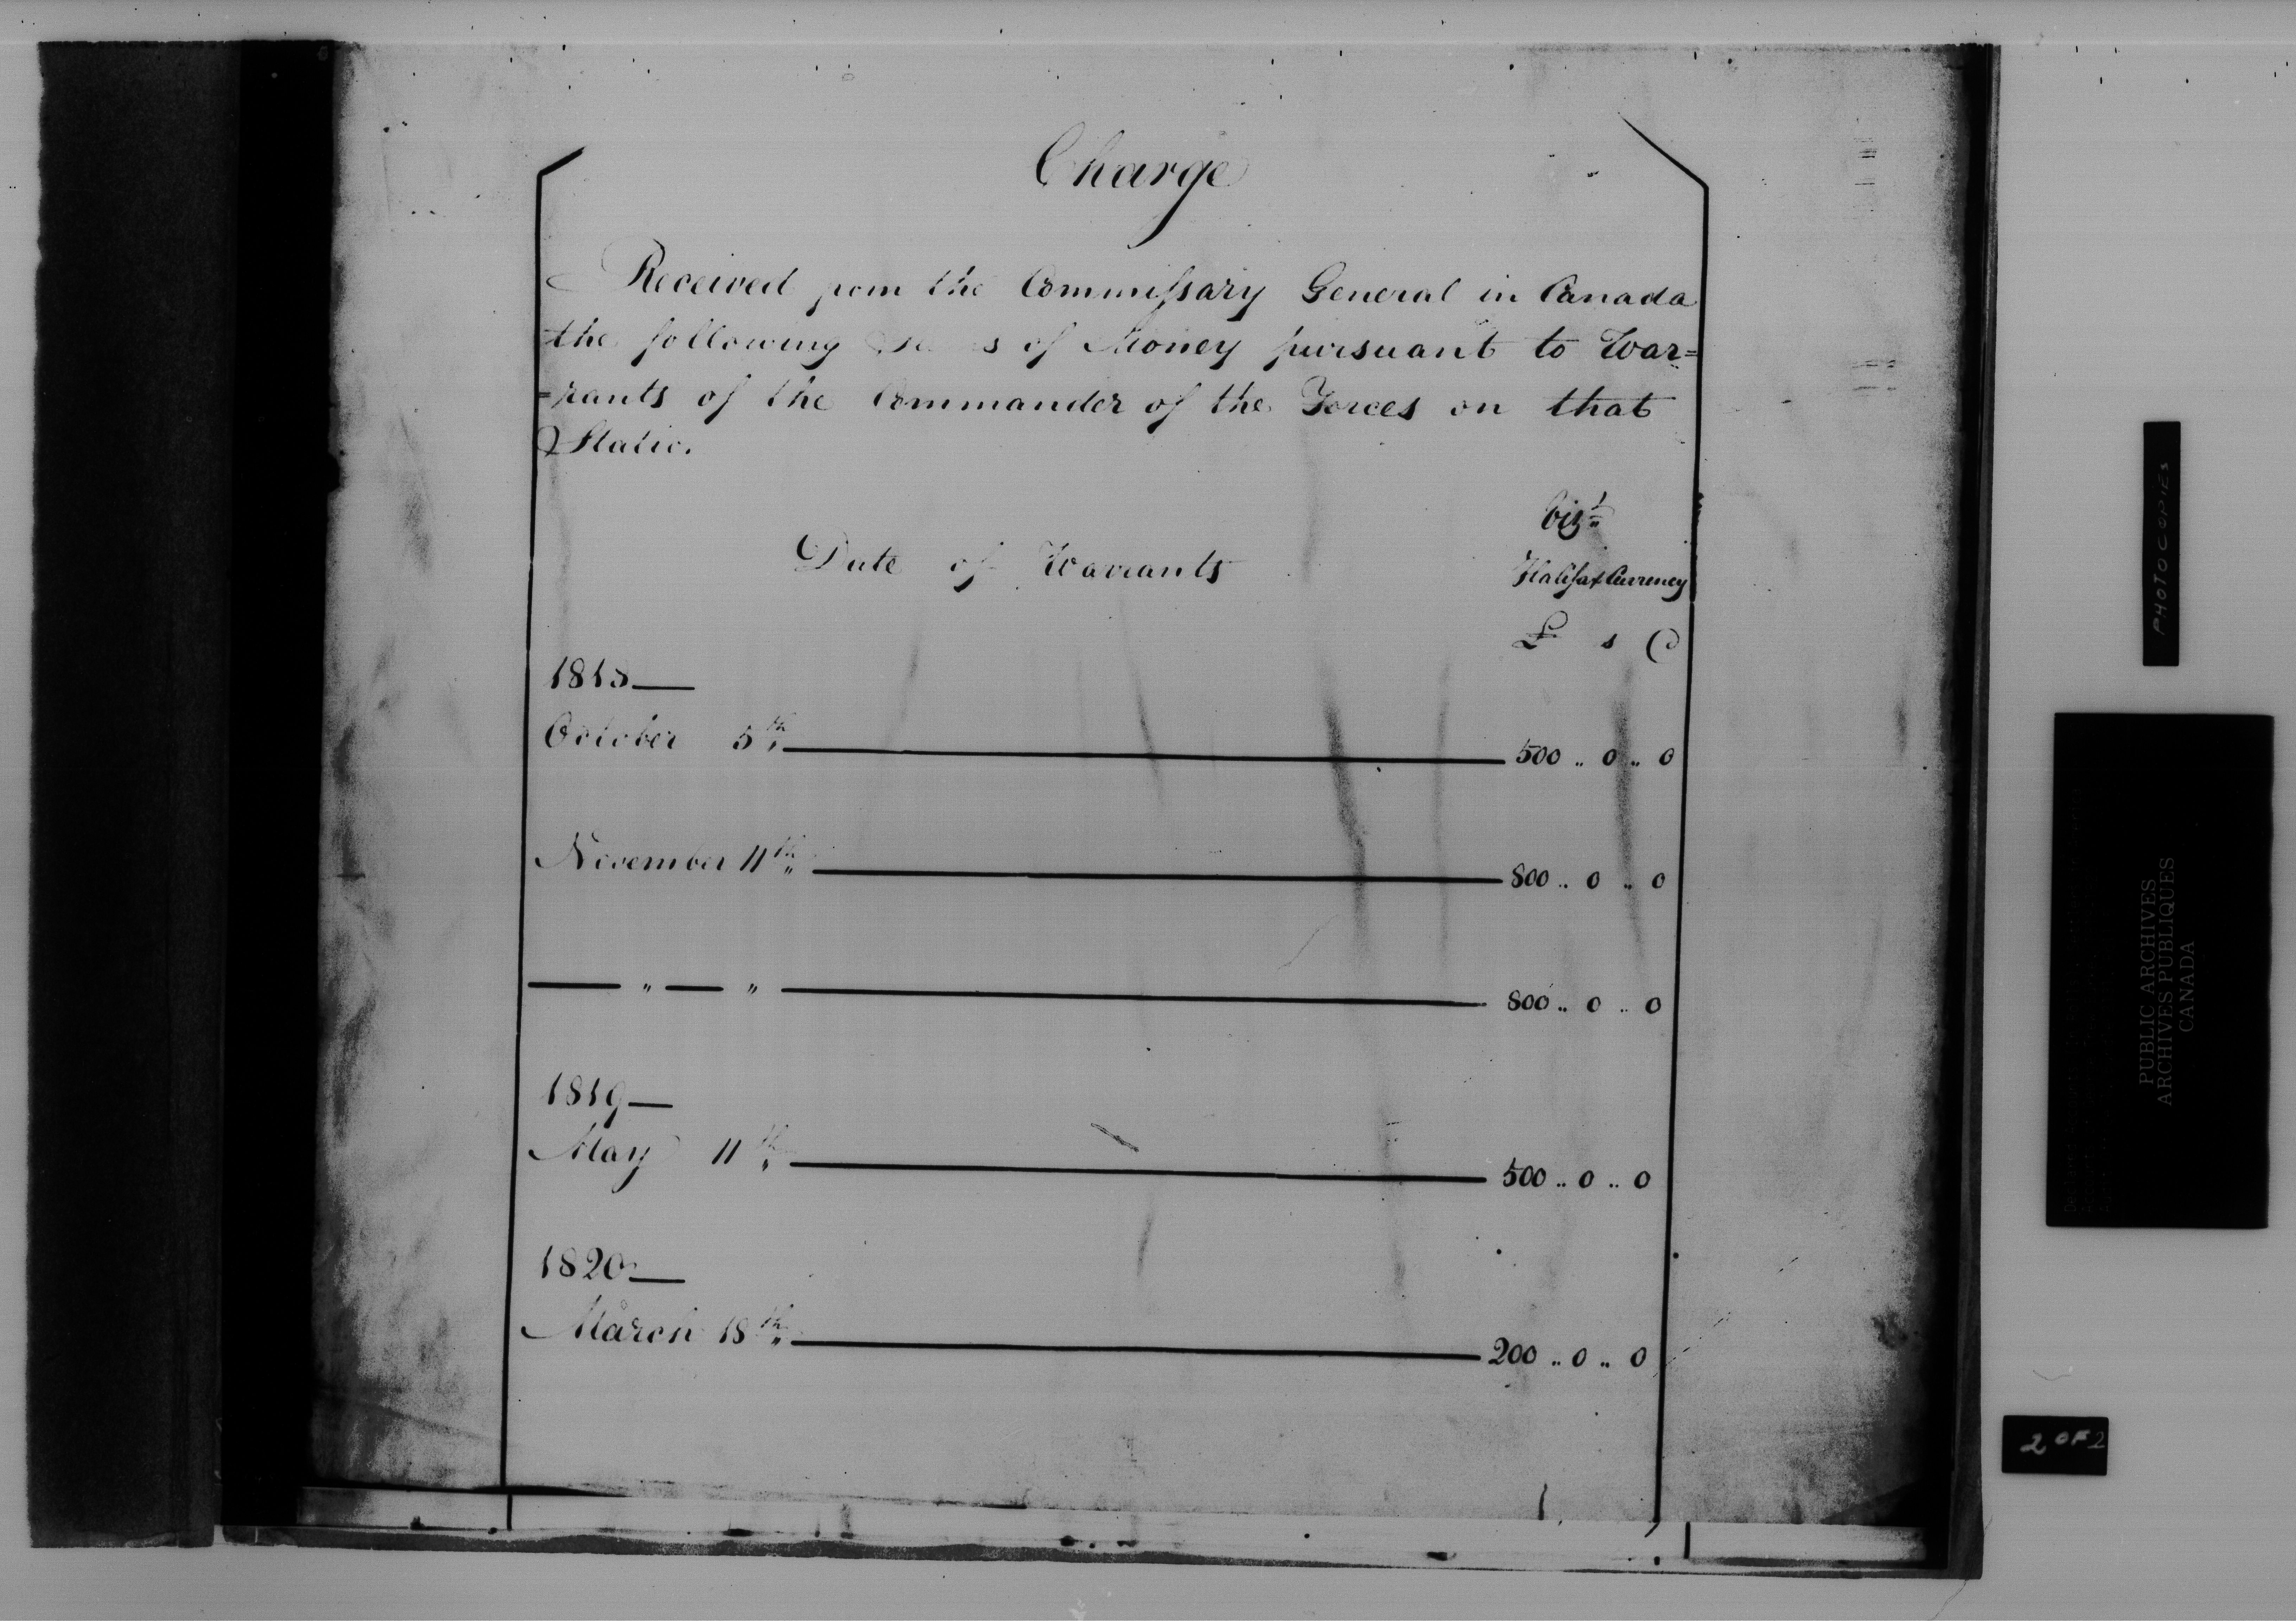 Charge
Received from the Commissary General in Canada
the following of Money pursuant to War=
=rants of the Commander of the Forces on that
Station.
Vizt
Date of Warrants
Halifax Currency
£ s D
October 5th 500 .. 0 .. 0
November 11th 800 .. 0 .. 0
" " 800 .. 0 .. 0
1819
May 11th 500 .. 0 .. 0
1820
March 18th 200 .. 0 .. 0
PHOTOCOPIES
PUBLIC ARCHIVES
ARCHIVES PUBLIQUES
CANADA
2 OF 2